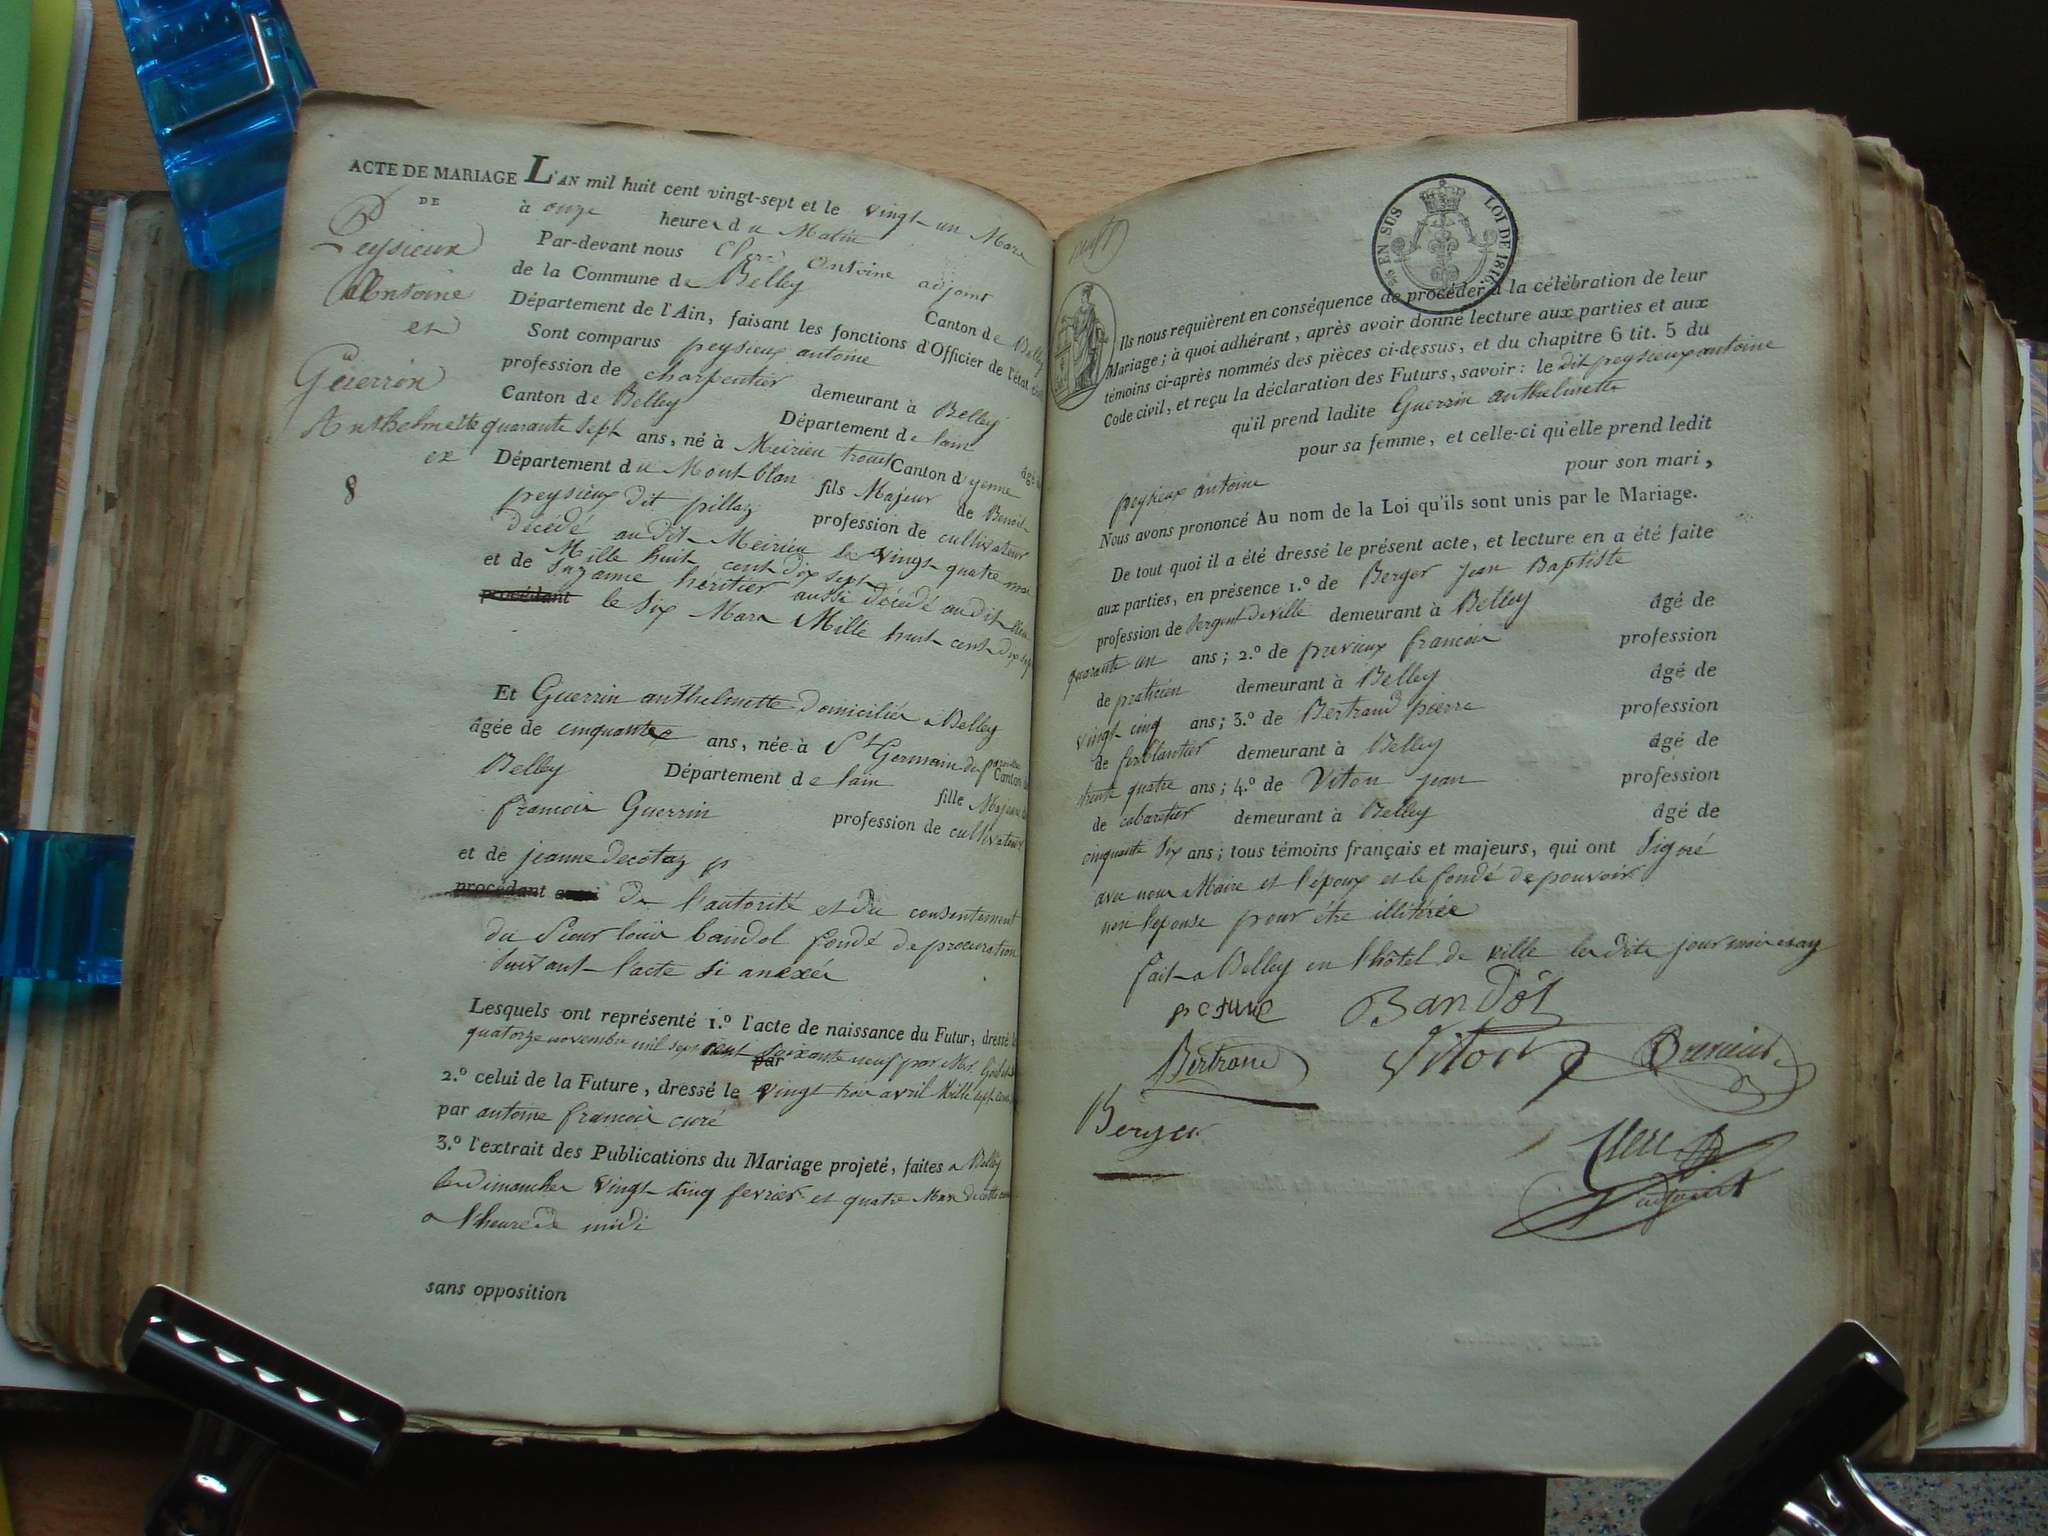 ACTE DE MARIAGE
DE
Peysieux
Antoine
et
Guerrin
Anthelmette
8
L'AN mil huit cent vingt-sept et le vingt un Mars
à onze heures du Matin
Par-devant nous Clerc Antoine adjoint
de la Commune de Belley Canton de Belley
Département de l'Ain, faisant les fonctions d'Officier de l'état civil
Sont comparus peysieux antoine
profession de charpentier demeurant à Belley
Canton de Belley Département de lain âgé de
quarante sept ans, né à Meirieu trouet Canton d'yenne
Département du Mont blan fils Majeur de Benoit
peysieux dit pillaz profession de cultivateur
décédé audit Meirieu le vingt quatre mai
Mille huit cent dix sept
et de Suzanne héritier aussi décédé audit lieu
procédant le six Mars Mille huit cent dix sept
Et Guerrin anthelmette domiciliée a Belley
âgée de cinquante ans, née à St Germain Canton de
Belley Département de lain fille Majeure de
francois Guerrin profession de cultivateur
et de jeanne decotaz
procédant aussi de l'autorité et du consentement
du Sieur louis bandol fondé de procuration
suivant l'acte si anexée
Lesquels ont représenté 1.º l'acte de naissance du Futur, dressé le
quatorze novembre mil sept cent soixante neuf par Mr.
par
2.º celui de la Future, dressé le vingt trois avril Mille sept cent
par antoine francois curé
3.º l'extrait des Publications du Mariage projeté, faites a Belley
les dimanches vingt cinq fevrier et quatre Mars de cette année
a l'heure de midi
sans opposition
25 EN SUS LOI DE 1816.
Ils nous requièrent en conséquence de procéder à la célébration de leur
Mariage; à quoi adhérant, après avoir donné lecture aux parties et aux
témoins ci-après nommés des pièces ci-dessus, et du chapitre 6 tit. 5 du
Code civil, et reçu la déclaration des Futurs, savoir: le dit peysieux antoine
qu'il prend ladite Guerrin anthelmette
pour sa femme, et celle-ci qu'elle prend ledit
peysieux antoine pour son mari,
Nous avons prononcé Au nom de la Loi qu'ils sont unis par le Mariage.
De tout quoi il a été dressé le présent acte, et lecture en a été faite
aux parties, en présence 1.º de Berger jean Baptiste
profession de sergent de ville demeurant à Belley âgé de
quarante un ans; 2.º de previeux francois profession
de praticien demeurant à Belley âgé de
vingt cinq ans; 3.º de Bertrand pierre profession
de ferblantier demeurant à Belley âgé de
trente quatre ans; 4.º de Viton jean profession
de cabaretier demeurant à Belley âgé de
cinquante six ans; tous témoins français et majeurs, qui ont signé
avec nous Maire et l'époux et le fondé de pouvoir
non l'epouse pour être illitérée
fait a Belley en l'hôtel de ville les dits jour mois et an
Bandol
Bertrand Viton Previeux
Berger
Clerc
adjoint